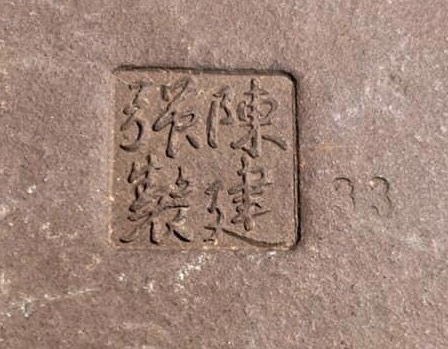 陳建
張製
33